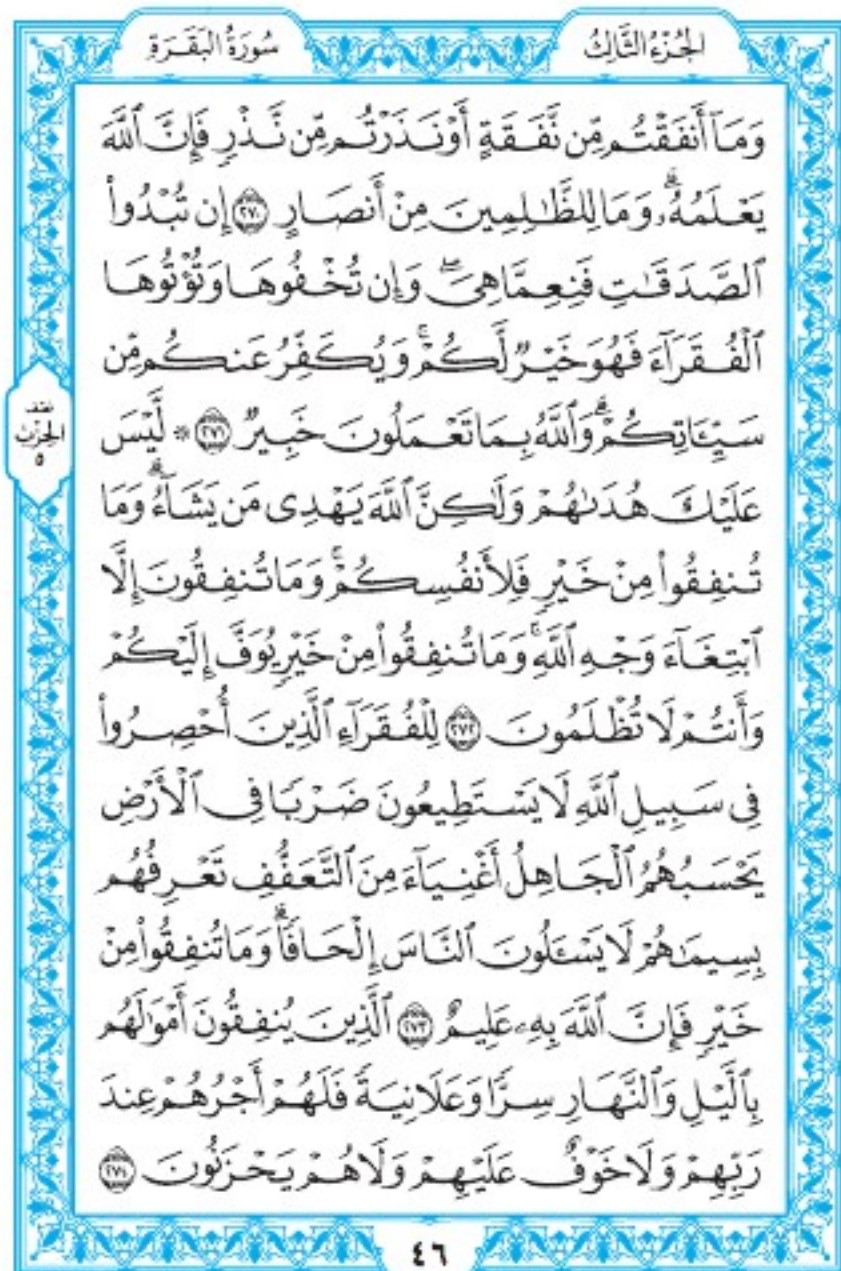 الجُزْءُ الثَّالِثُ
سُورَةُ البَقَرَةِ
وَمَآ أَنفَقْتُم مِّن نَّفَقَةٍ أَوْ نَذَرْتُم مِّن نَّذْرٍ فَإِنَّ ٱللَّهَ
يَعْلَمُهُۥۗ وَمَا لِلظَّٰلِمِينَ مِنْ أَنصَارٍ ٢٧٠ إِن تُبْدُوا۟
ٱلصَّدَقَٰتِ فَنِعِمَّا هِىَۖ وَإِن تُخْفُوهَا وَتُؤْتُوهَا
ٱلْفُقَرَآءَ فَهُوَ خَيْرٌ لَّكُمْۚ وَيُكَفِّرُ عَنكُم مِّن
سَيِّـَٔاتِكُمْۗ وَٱللَّهُ بِمَا تَعْمَلُونَ خَبِيرٌ ٢٧١ * لَّيْسَ
عَلَيْكَ هُدَىٰهُمْ وَلَٰكِنَّ ٱللَّهَ يَهْدِى مَن يَشَآءُۗ وَمَا
تُنفِقُوا۟ مِنْ خَيْرٍ فَلِأَنفُسِكُمْۚ وَمَا تُنفِقُونَ إِلَّا
ٱبْتِغَآءَ وَجْهِ ٱللَّهِۚ وَمَا تُنفِقُوا۟ مِنْ خَيْرٍ يُوَفَّ إِلَيْكُمْ
وَأَنتُمْ لَا تُظْلَمُونَ ٢٧٢ لِلْفُقَرَآءِ ٱلَّذِينَ أُحْصِرُوا۟
فِى سَبِيلِ ٱللَّهِ لَا يَسْتَطِيعُونَ ضَرْبًا فِى ٱلْأَرْضِ
يَحْسَبُهُمُ ٱلْجَاهِلُ أَغْنِيَآءَ مِنَ ٱلتَّعَفُّفِ تَعْرِفُهُم
بِسِيمَٰهُمْ لَا يَسْـَٔلُونَ ٱلنَّاسَ إِلْحَافًاۗ وَمَا تُنفِقُوا۟ مِنْ
خَيْرٍ فَإِنَّ ٱللَّهَ بِهِۦ عَلِيمٌ ٢٧٣ ٱلَّذِينَ يُنفِقُونَ أَمْوَٰلَهُم
بِٱلَّيْلِ وَٱلنَّهَارِ سِرًّا وَعَلَانِيَةً فَلَهُمْ أَجْرُهُمْ عِندَ
رَبِّهِمْ وَلَا خَوْفٌ عَلَيْهِمْ وَلَا هُمْ يَحْزَنُونَ ٢٧٤
الحِزْب
٥
٤٦